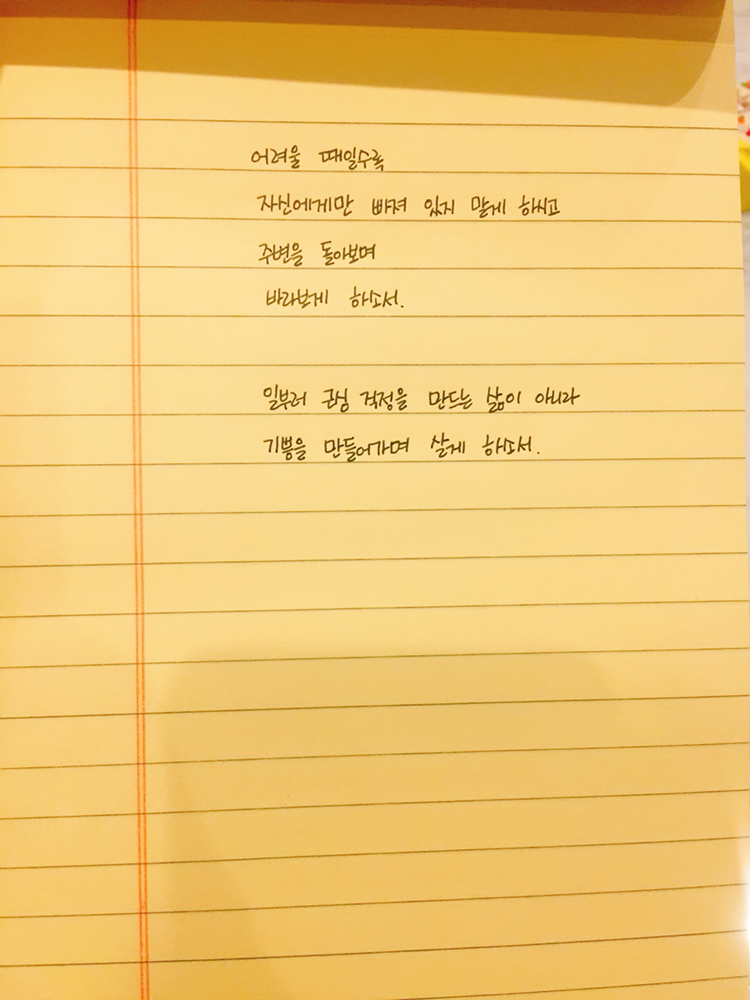 어려울 때일수록
자신에게만 빠져 있지 말게 하시고
주변을 돌아보며
바라보게 하소서.
일부러 근심 걱정을 만드는 삶이 아니라
기쁨을 만들어가며 살게 하소서.